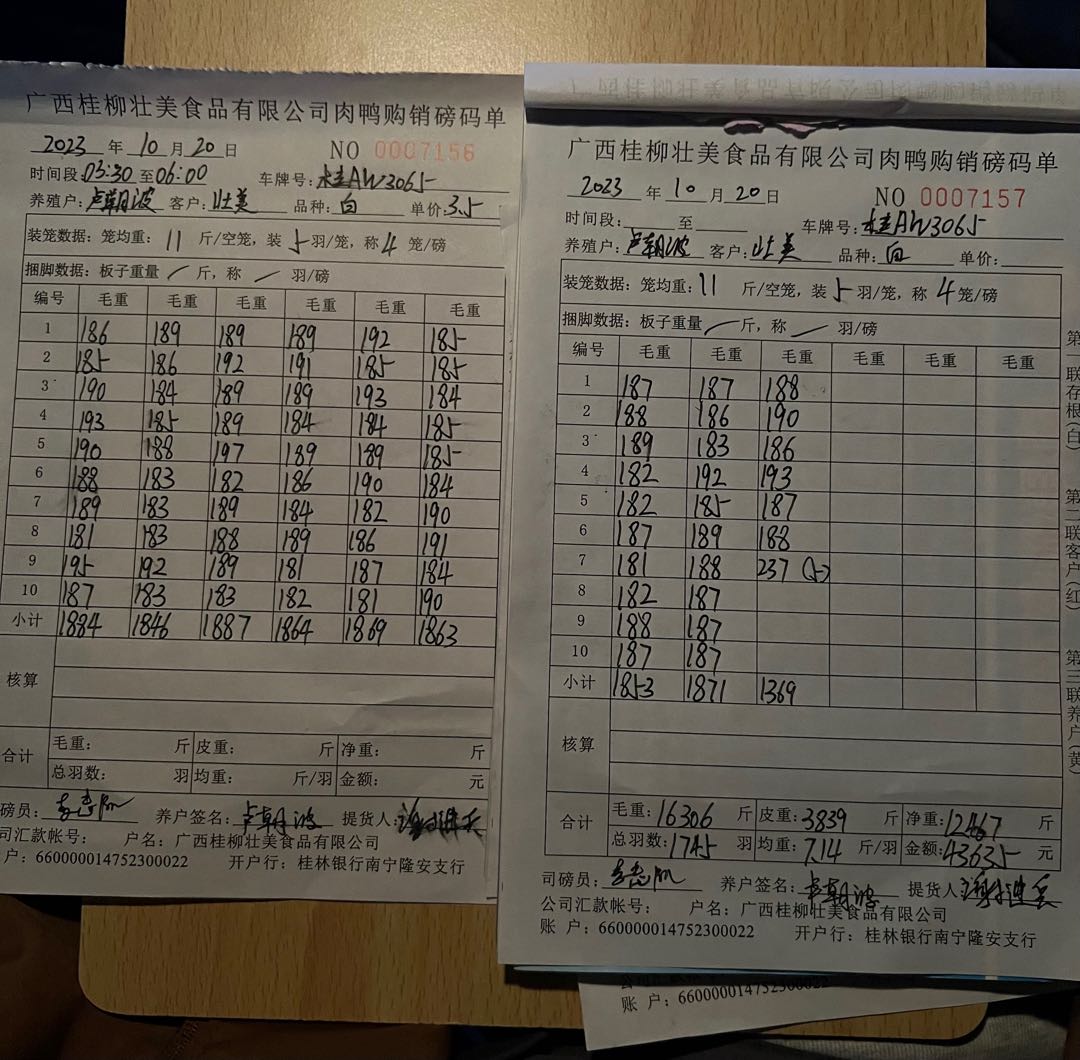 广西桂柳壮美食品有限公司肉鸭购销磅码单
2023 年 10 月 20 日 NO 0007156
时间段:03:30 至06:00 车牌号:桂AW3065
养殖户:卢朝波 客户:壮美 品种:白 单价:3.5
装笼数据：笼均重：11 斤/空笼，装 5 羽/笼，称 4 笼/磅
捆脚数据：板子重量 / 斤，称 / 羽/磅
编号 毛重 毛重 毛重 毛重 毛重 毛重
1 186 189 189 189 192 185
2 185 186 192 191 185 185
3 190 184 189 189 193 184
4 193 185 189 184 184 185
5 190 188 197 189 189 185
6 188 183 182 186 190 184
7 189 183 189 184 182 190
8 181 183 188 189 186 191
9 195 192 189 181 187 184
10 187 183 183 182 181 190
小计 1884 1846 1887 1864 1869 1863
核算
合计 毛重： 斤 皮重： 斤 净重： 斤
总羽数： 羽 均重： 斤/羽 金额： 元
磅员： 养户签名：卢朝波 提货人：
司汇款帐号： 户名：广西桂柳壮美食品有限公司
户：660000014752300022 开户行：桂林银行南宁隆安支行
广西桂柳壮美食品有限公司肉鸭购销磅码单
2023 年 10 月 20 日 NO 0007157
时间段: 至 车牌号:桂AW3065
养殖户:卢朝波 客户:壮美 品种:白 单价:
装笼数据：笼均重：11 斤/空笼，装 5 羽/笼，称 4 笼/磅
捆脚数据：板子重量 / 斤，称 / 羽/磅
编号 毛重 毛重 毛重 毛重 毛重 毛重
1 187 187 188
2 188 186 190
3 189 183 186
4 182 192 193
5 182 185 187
6 187 189 188
7 181 188 237
8 182 187
9 188 187
10 187 187
小计 1853 1871 1369
核算
合计 毛重：16306 斤 皮重：3839 斤 净重：12467 斤
总羽数：1745 羽 均重：7.14 斤/羽 金额：43635 元
司磅员： 养户签名：卢朝波 提货人：
公司汇款帐号： 户名：广西桂柳壮美食品有限公司
账 户：660000014752300022 开户行：桂林银行南宁隆安支行
第一联存根(白) 第二联客户(红) 第三联养户(黄)
账 户：660000014752300022